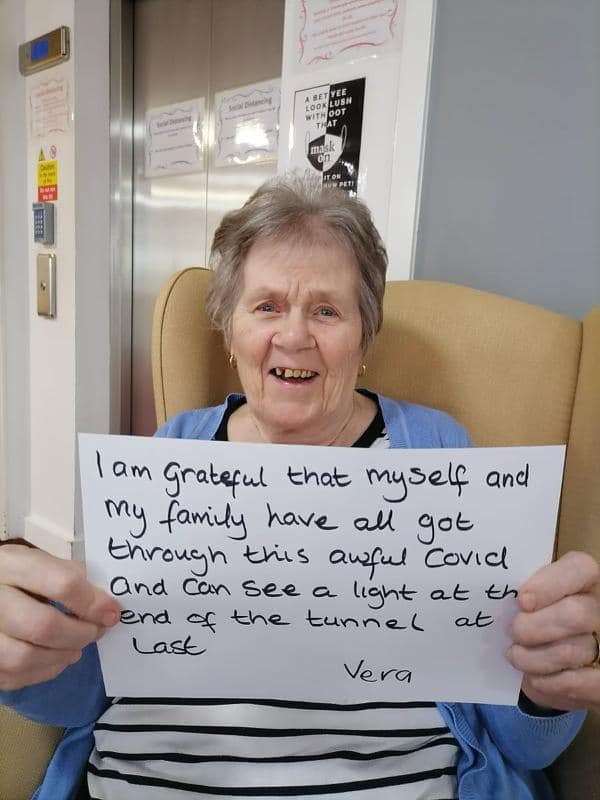 Social Distancing
Social Distancing
A BET YEE
LOOK LUSH
WITH OOT
THAT
mask
on
IT ON
PET!
Caution
I am grateful that myself and
my family have all got
through this awful Covid
and can see a light at th
end of the tunnel at
Last
Vera